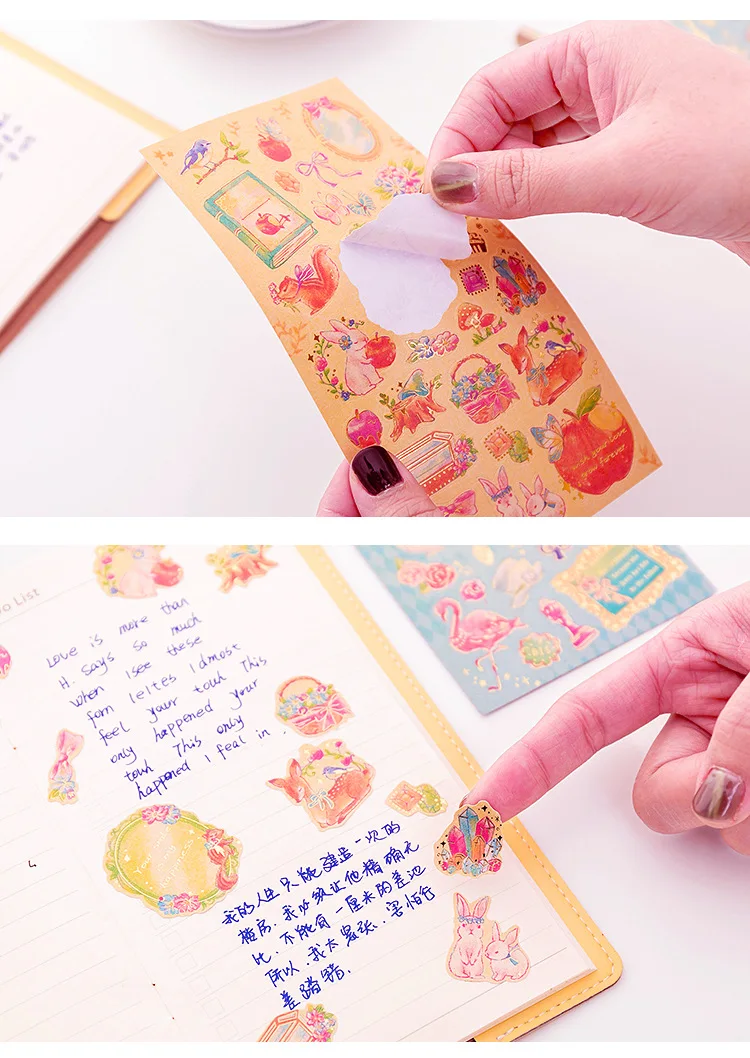 grow forever
o List
Love is more than
H. Says so much
when I see these
forn leites Idmost
feel your touh This
only happened your
touh This only
happened I feal in.
我的人生只能建造一次的
楼房，我必须让他精确无
比，不能有一厘米的差池
所以，我太紧张，害怕行
差踏错.